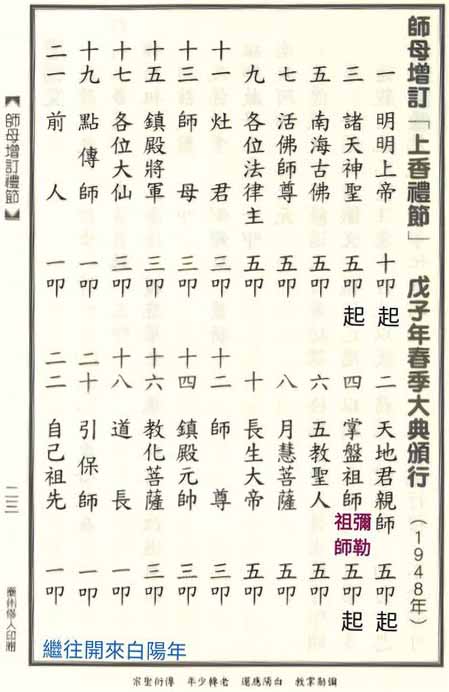 師母增訂「上香禮節」 戊子年春季大典頒行(1948年)
一 明明上帝 十叩 起 二 天地君親師 五叩 起
三 諸天神聖 五叩 起 四 掌盤祖師 五叩 起
彌勒
祖師
五 南海古佛 五叩 六 五教聖人 五叩
七 活佛師尊 五叩 八 月慧菩薩 五叩
九 各位法律主 五叩 十 長生大帝 五叩
十一 灶君 三叩 十二 師尊 三叩
十三 師母 三叩 十四 鎮殿元帥 三叩
十五 鎮殿將軍 三叩 十六 教化菩薩 三叩
十七 各位大仙 三叩 十八 道長 一叩
十九 點傳師 一叩 二十 引保師 一叩
二一 前人 一叩 二二 自己祖先 一叩
繼往開來白陽年
【師母增訂禮節】
二三
彌勒掌教 白陽應運 老轉少年 傳衍聖宗